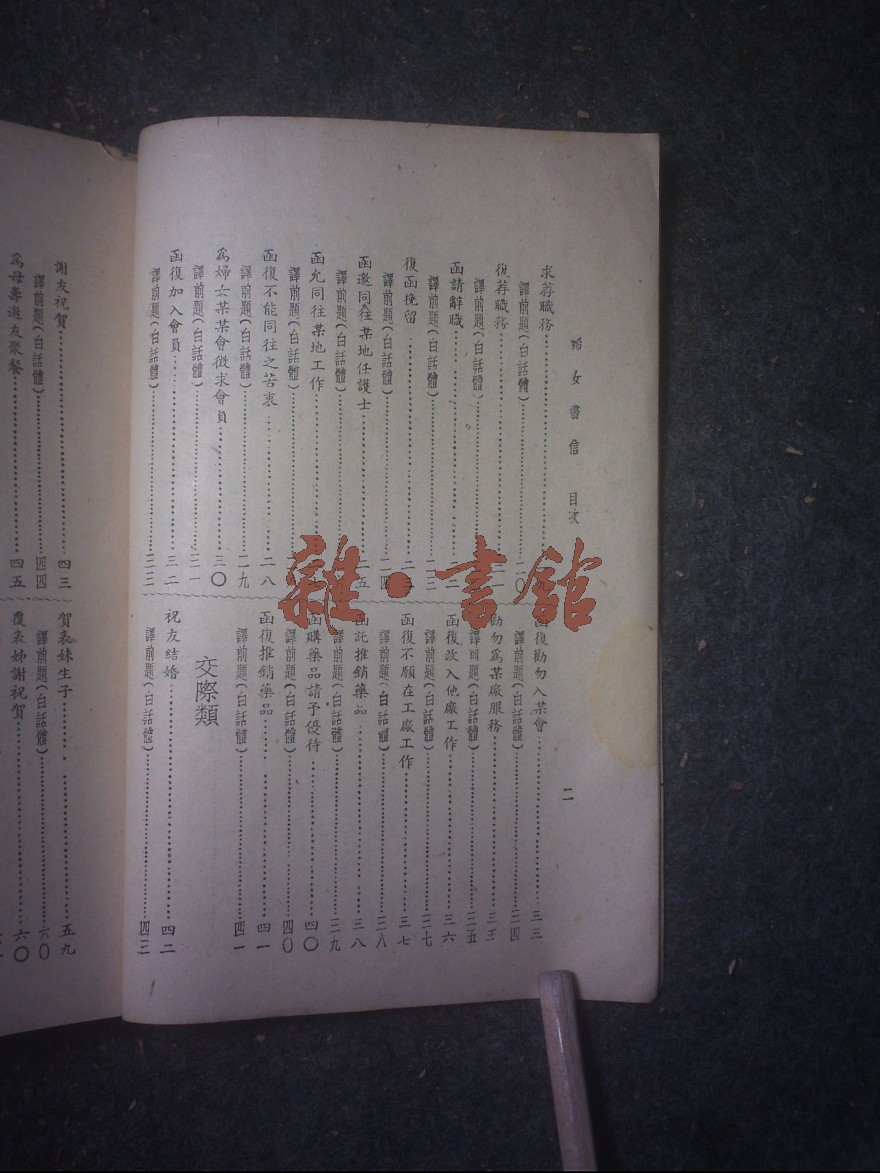 婦女書信 目次
二
求荐職務
譯前題(白話體)二〇
復荐職務
譯前題(白話體)
函請辭職
譯前題(白話體)二三
復函挽留
譯前題(白話體)二四
函邀同往某地任護士二五
譯前題(白話體)
函允同往某地工作
譯前題(白話體)
函復不能同往之苦衷二八
譯前題(白話體)二九
爲婦女某某會徵求會員三〇
譯前題(白話體)三一
函復加入會員三二
譯前題(白話體)三三
函復勸勿入某會三三
譯前題(白話體)三四
勸勿爲某廠服務三五
譯前題(白話體)三五
函復改入他廠工作三六
譯前題(白話體)三七
函復不願在工廠工作三七
譯前題(白話體)三八
函託推銷藥品三八
譯前題(白話體)三九
函購藥品請予優待四〇
譯前題(白話體)四〇
函復推銷藥品四一
譯前題(白話體)四一
交際類
祝友結婚四二
譯前題(白話體)四三
謝友祝賀四三
譯前題(白話體)四四
爲母壽邀友聚餐四五
賀表妹生子五九
譯前題(白話體)六〇
覆表姊謝祝賀六〇
雜·書館